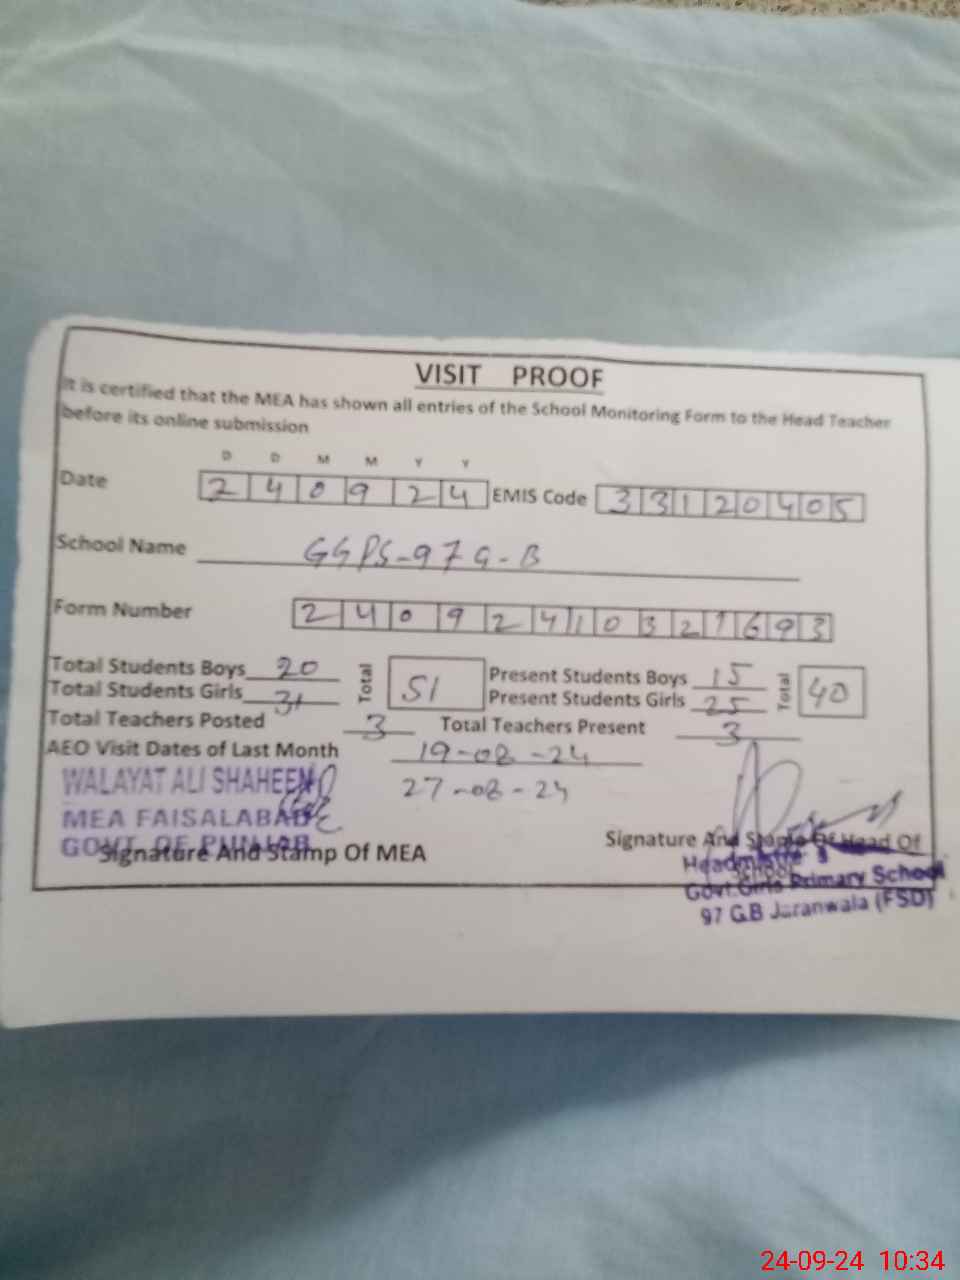 VISIT PROOF
It is certified that the MEA has shown all entries of the School Monitoring Form to the Head Teacher
before its online submission
D D M M Y Y
Date 2 4 0 9 2 4 EMIS Code 3 3 1 2 0 4 0 5
School Name GGPS-97 G-B
Form Number 2 4 0 9 2 4 1 0 3 2 1 6 9 3
Total Students Boys 20 Total 51 Present Students Boys 15 Total 40
Total Students Girls 31 Present Students Girls 25
Total Teachers Posted 3 Total Teachers Present 3
AEO Visit Dates of Last Month 19-08-24
27-08-24
WALAYAT ALI SHAHEEN
MEA FAISALABAD
GOVT. OF PUNJAB
Signature And Stamp Of MEA
Signature And Stamp Of Head Of
School
Headmistress
Govt. Girls Primary School
97 G.B Jaranwala (FSD)
24-09-24 10:34